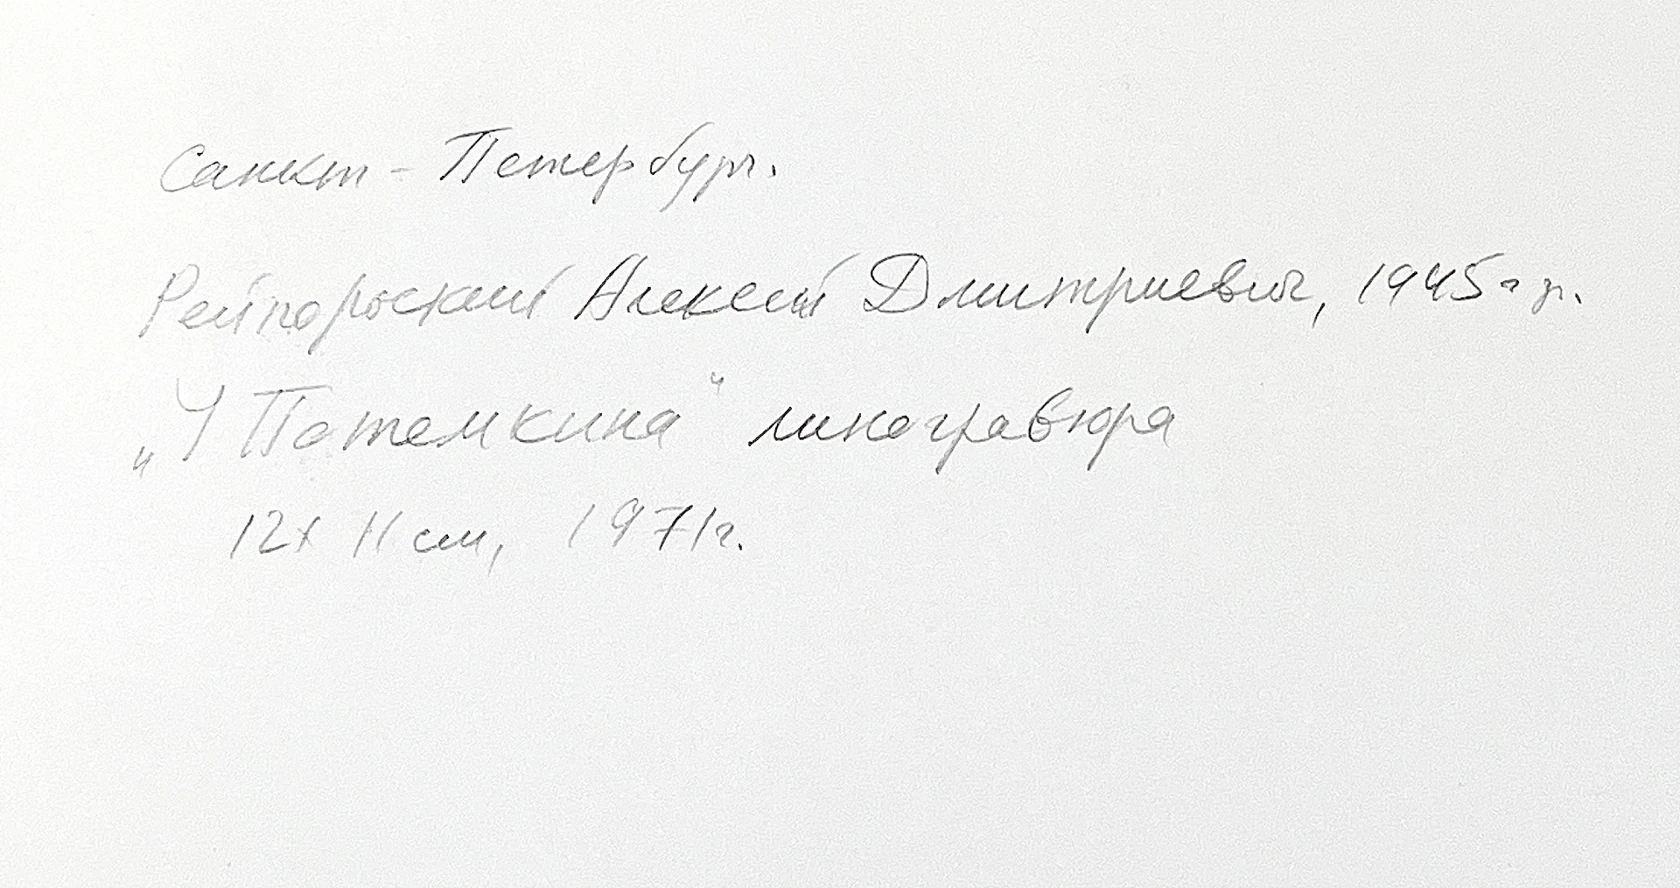 Санкт-Петербург.
Алексей Дмитриевич, 1945 г.р.
„У Потемкина" линогравюра
12х11 см, 1971г.